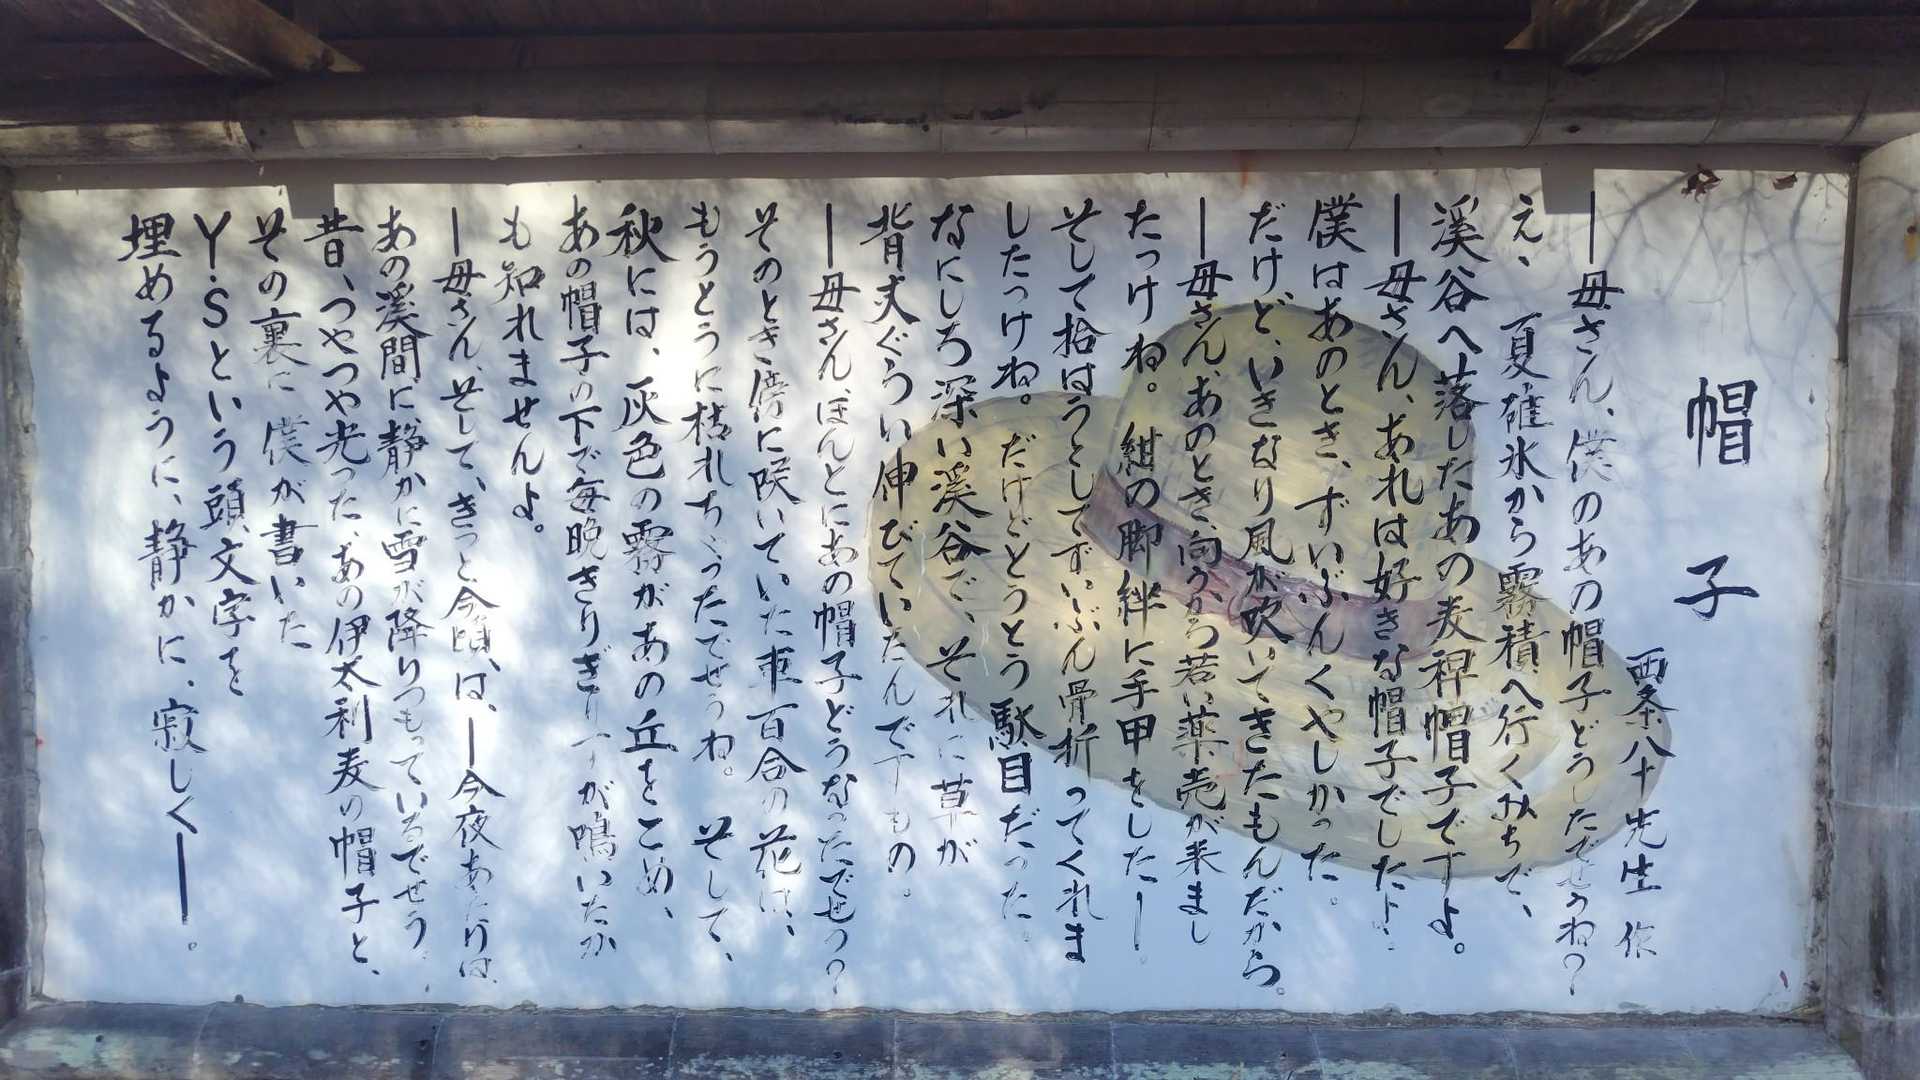 帽子
西条八十先生 作
―母さん、僕のあの帽子どうしたでせうね?
え、夏碓氷から霧積へ行くみちで、
溪谷へ落したあの麦稈帽子ですよ。
―母さん、あれは好きな帽子でしたよ。
僕はあのとき、ずいぶんくやしかった。
だけど、いきなり風が吹いてきたもんだから。
―母さん、あのとき、向うから若い薬売が来まし
たっけね。紺の脚絆に手甲をした―。
そして拾はうとしてずいぶん骨折ってくれま
したっけね。だけどとうとう駄目だった。
なにしろ深い溪谷で、それに草が
背丈ぐらい伸びていたんですもの。
―母さん、ほんとにあの帽子どうなったでせう?
そのとき傍に咲いていた車百合の花は、
もうとうに枯れちゃったでせうね。そして、
秋には、灰色の霧があの丘をこめ、
あの帽子の下で毎晩きりぎりすが鳴いたか
も知れませんよ。
―母さん、そして、きっと今頃は、―今夜あたりは、
あの溪間に、静かに雪が降りつもっているでせう、
昔、つやつや光った、あの伊太利麦の帽子と、
その裏に 僕が書いた
Y.Sという頭文字を
埋めるように、静かに、寂しく―。